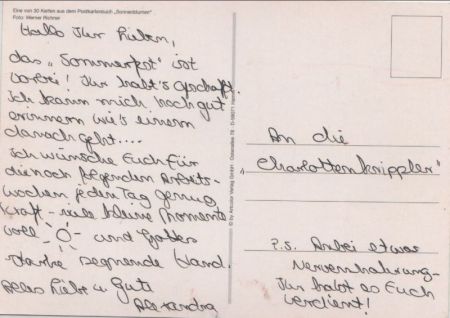 Eine von 30 Karten aus dem Postkartenbuch „Sonnenblumen“
Foto: Werner Richner
Hallo Ihr Lieben,
das „Sommerfest“ ist
vorbei! Ihr habt's geschafft.
Ich kann mich noch gut
erinnern wie's einem
danach geht....
Ich wünsche Euch für
die noch folgenden Arbeits-
wochen jeden Tag genug
Kraft - viele kleine Momente
voll und Gottes
starke segnende Hand.
Alles Liebe u. Gute
Alexandra
© by Artcolor Verlag GmbH
An die
„Charlottenknippler“
P.S. Anbei etwas
Nervennahrung -
Ihr habt es Euch
verdient!